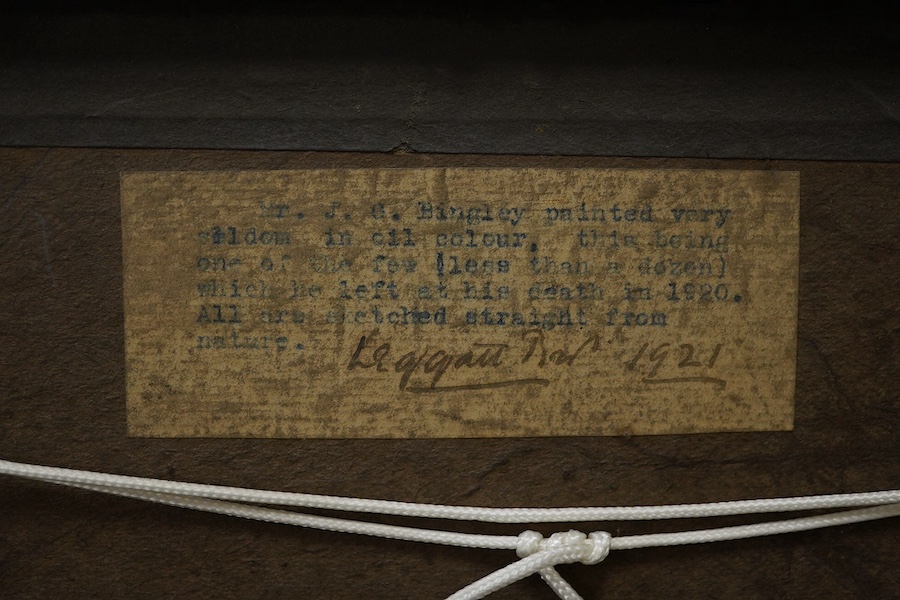 Mr. J. G. Bingley painted very
seldom in oil colour, this being
one of the few (less than a dozen)
which he left at his death in 1920.
All are sketched straight from
nature.
Leggatt Bros 1921